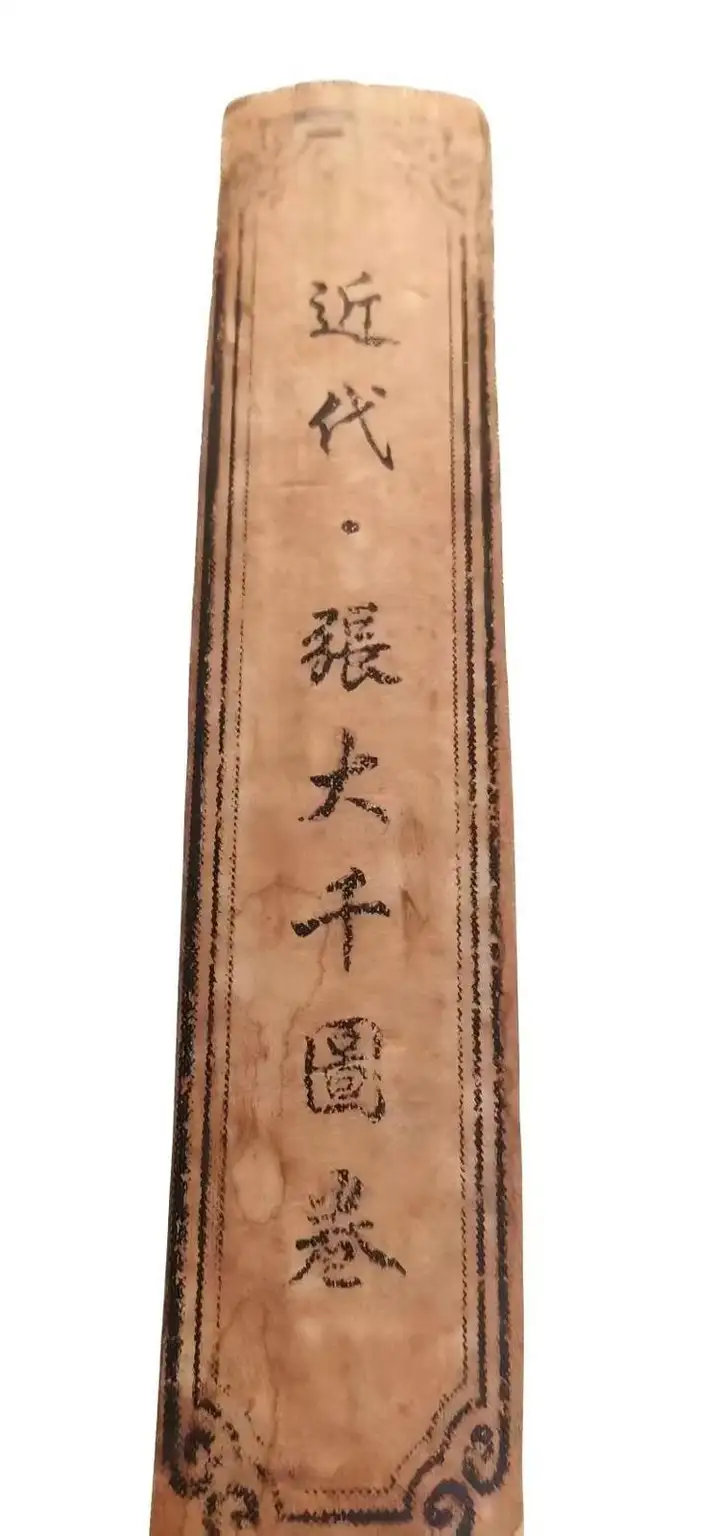 近代·張大千圖卷